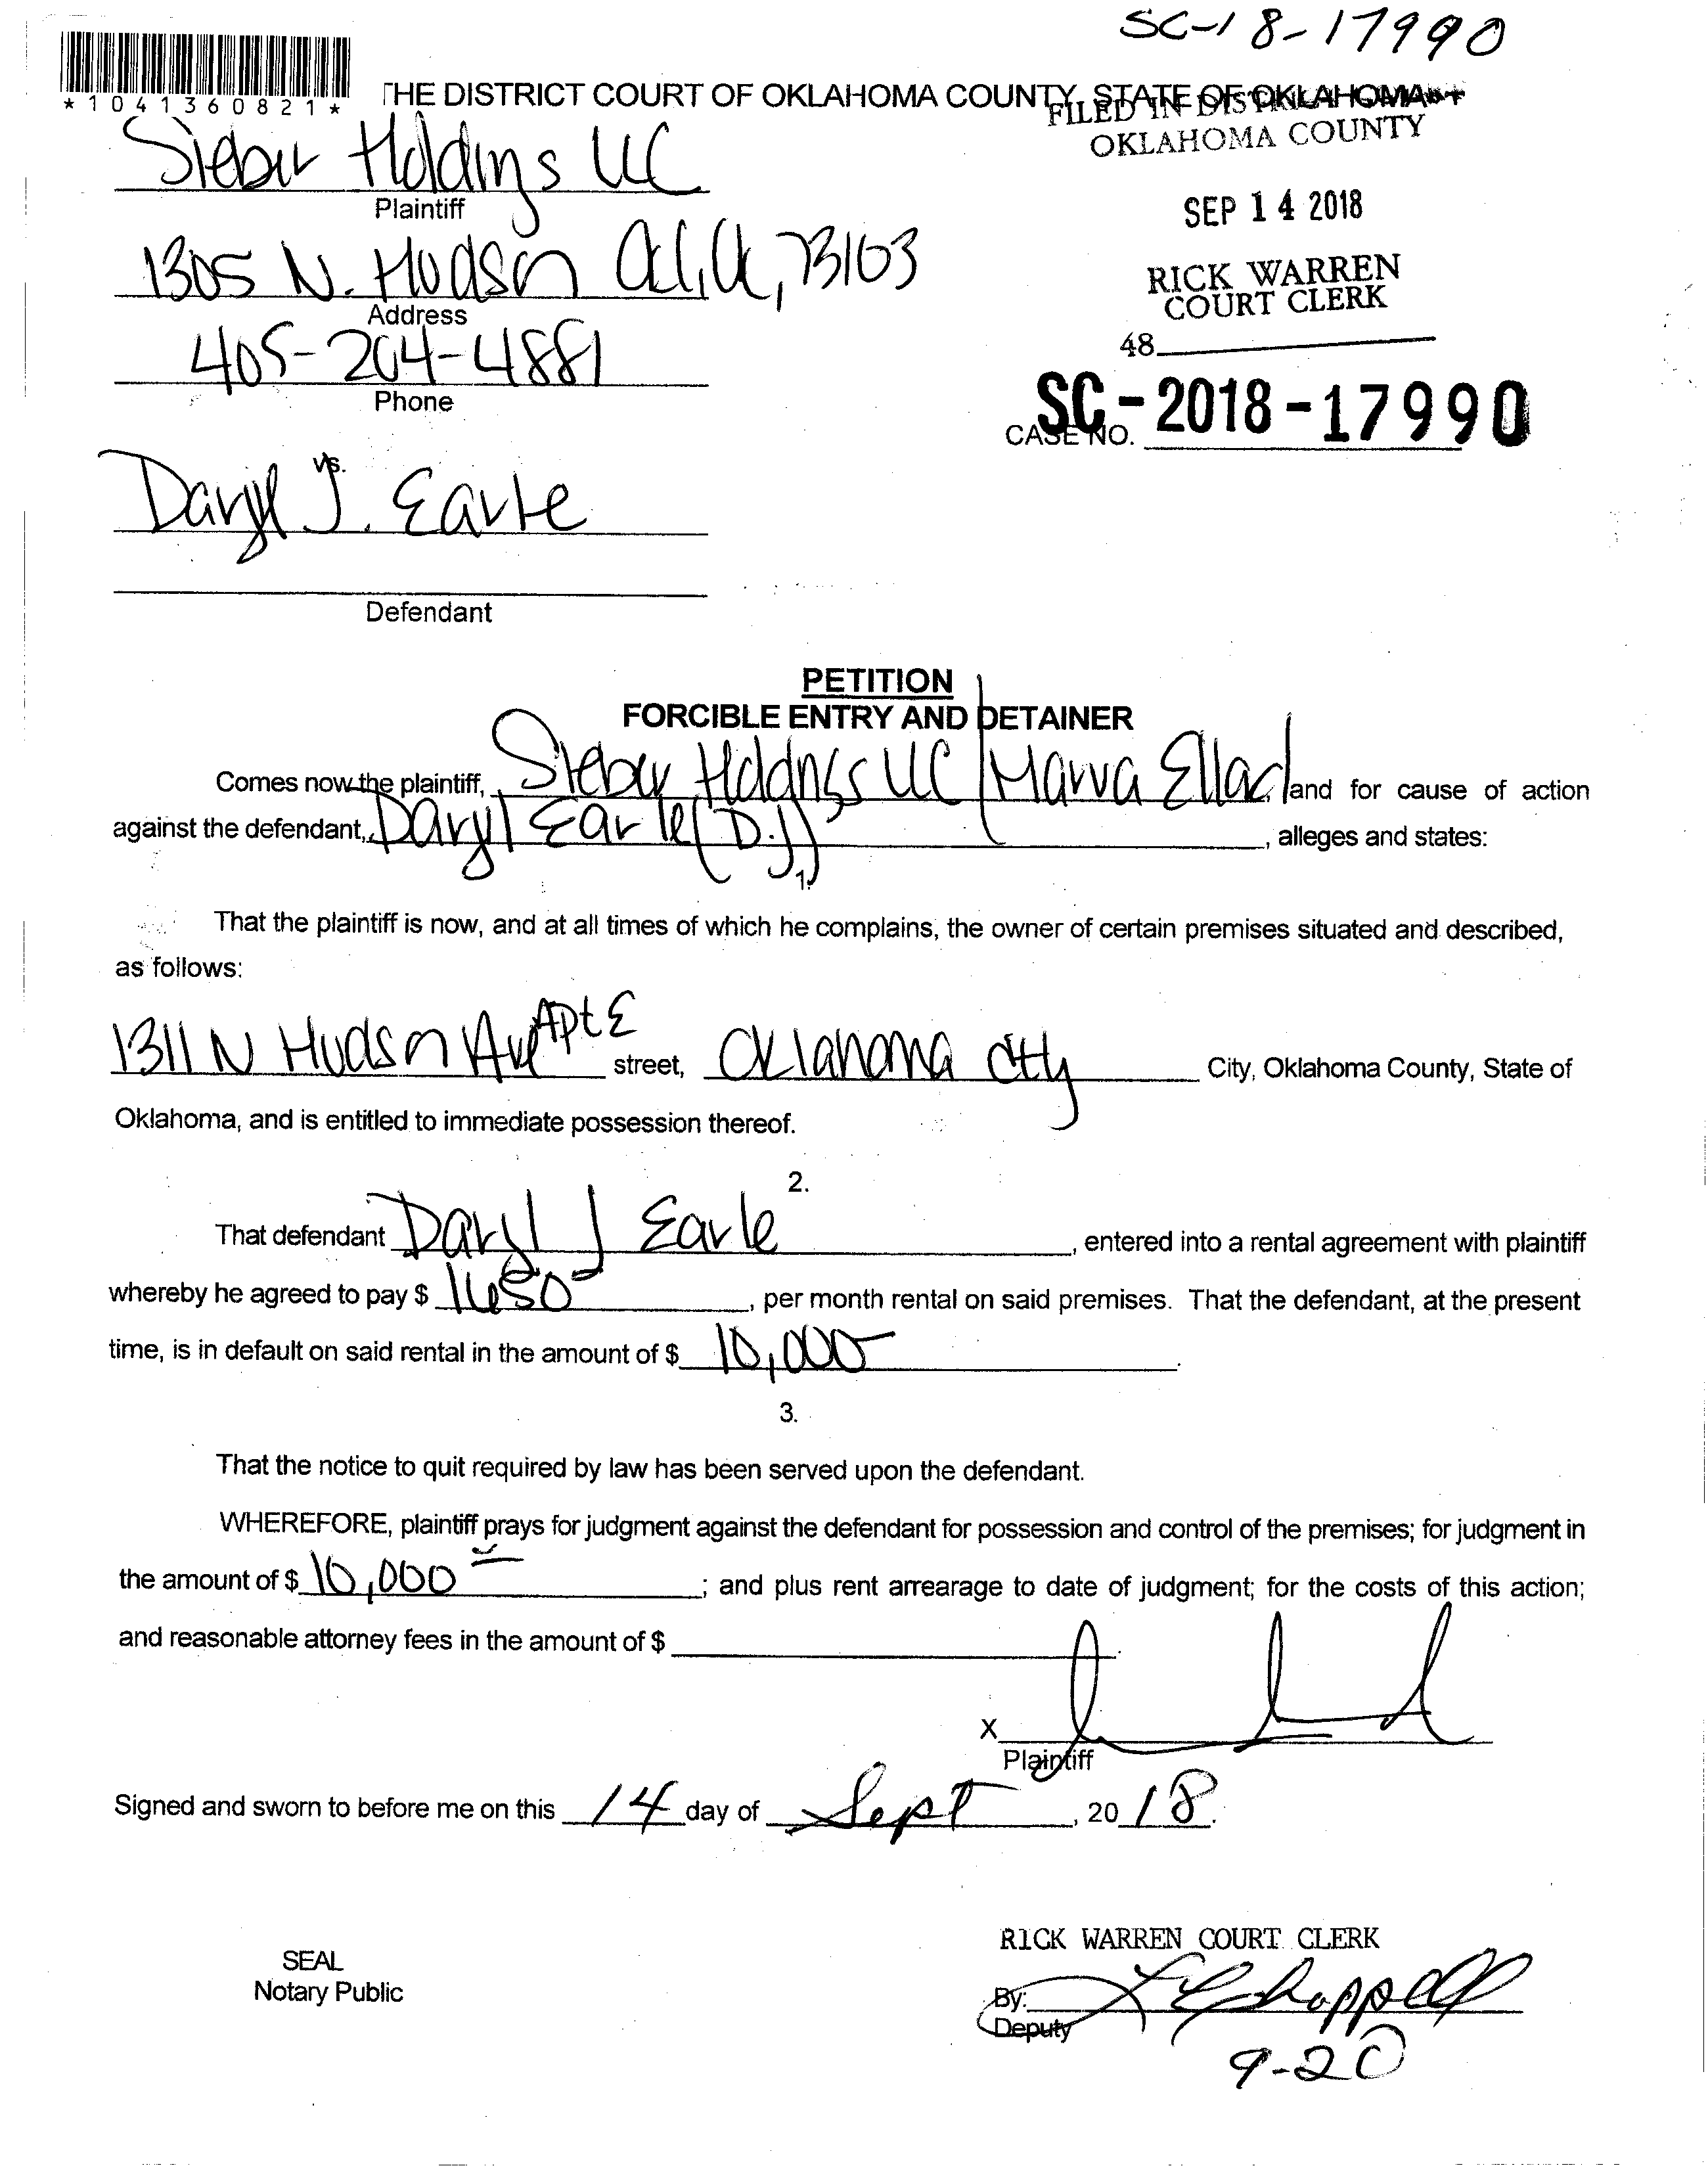 SC-18-17990
*1041360821*
THE DISTRICT COURT OF OKLAHOMA COUNTY, STATE OF OKLAHOMA
FILED IN DISTRICT COURT
OKLAHOMA COUNTY
Sieber Holdings LLC
Plaintiff
SEP 14 2018
1305 N. Hudson 73103
Address
RICK WARREN
COURT CLERK
405-204-4881
Phone
48
SC-2018-17990
CASE NO.
vs.
Daryl J. Earle
Defendant
PETITION
FORCIBLE ENTRY AND DETAINER
Comes now the plaintiff, Sieber Holdings LLC / Marva Ellard and for cause of action
against the defendant, Daryl Earle (D.J), alleges and states:
1.
That the plaintiff is now, and at all times of which he complains, the owner of certain premises situated and described,
as follows:
1311 N Hudson Ave Apt E street, Oklahoma City City, Oklahoma County, State of
Oklahoma, and is entitled to immediate possession thereof.
2.
That defendant Daryl J Earle, entered into a rental agreement with plaintiff
whereby he agreed to pay $ 1650, per month rental on said premises. That the defendant, at the present
time, is in default on said rental in the amount of $ 10,000.
3.
That the notice to quit required by law has been served upon the defendant.
WHEREFORE, plaintiff prays for judgment against the defendant for possession and control of the premises; for judgment in
the amount of $ 10,000; and plus rent arrearage to date of judgment; for the costs of this action;
and reasonable attorney fees in the amount of $
X
Plaintiff
Signed and sworn to before me on this 14 day of Sept, 2018.
RICK WARREN COURT CLERK
SEAL
Notary Public
By:
Deputy
9-20